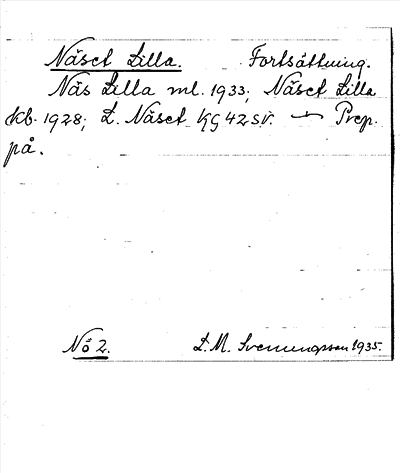 Näset Lilla. Fortsättning.
Näs Lilla ml. 1933; Näset Lilla
kb. 1928; L. Näset KG 42 SV. — Prep.
på.
No 2. L. M. Svenungsson 1935.